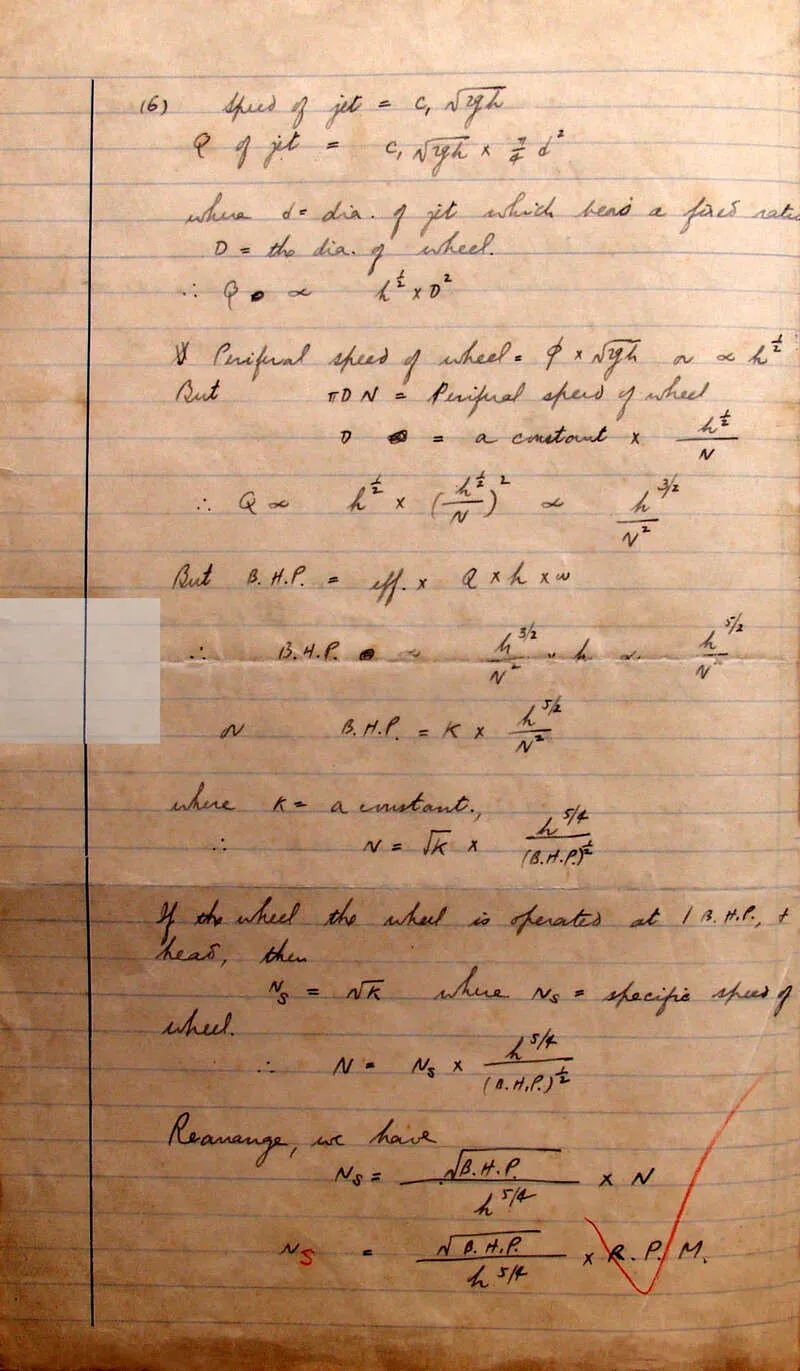 (6) Speed of jet = c, √2gh
Q of jet = c, √2gh × π/4 d²
where d = dia. of jet which bears a fixed ratio
D = the dia. of wheel.
∴ Q ∝ h^½ × D²
Perifual speed of wheel = φ × √2gh or ∝ h^½
But πDN = Perifual speed of wheel
D = a constant × h^½/N
∴ Q ∝ h^½ × (h^½/N)² ∝ h^3/2/N²
But B.H.P. = eff. × Q × h × w
∴ B.H.P. ∝ h^3/2/N² × h ∝ h^5/2/N²
or B.H.P. = K × h^5/2/N²
where K = a constant.,
∴ N = √K × h^5/4/(B.H.P.)^½
If the wheel the wheel is operated at 1 B.H.P., +
head, then
Ns = √K where Ns = specific speed of
wheel.
∴ N = Ns × h^5/4/(B.H.P.)^½
Rearange, we have
Ns = √B.H.P./h^5/4 × N
Ns = √B.H.P./h^5/4 × R.P.M.